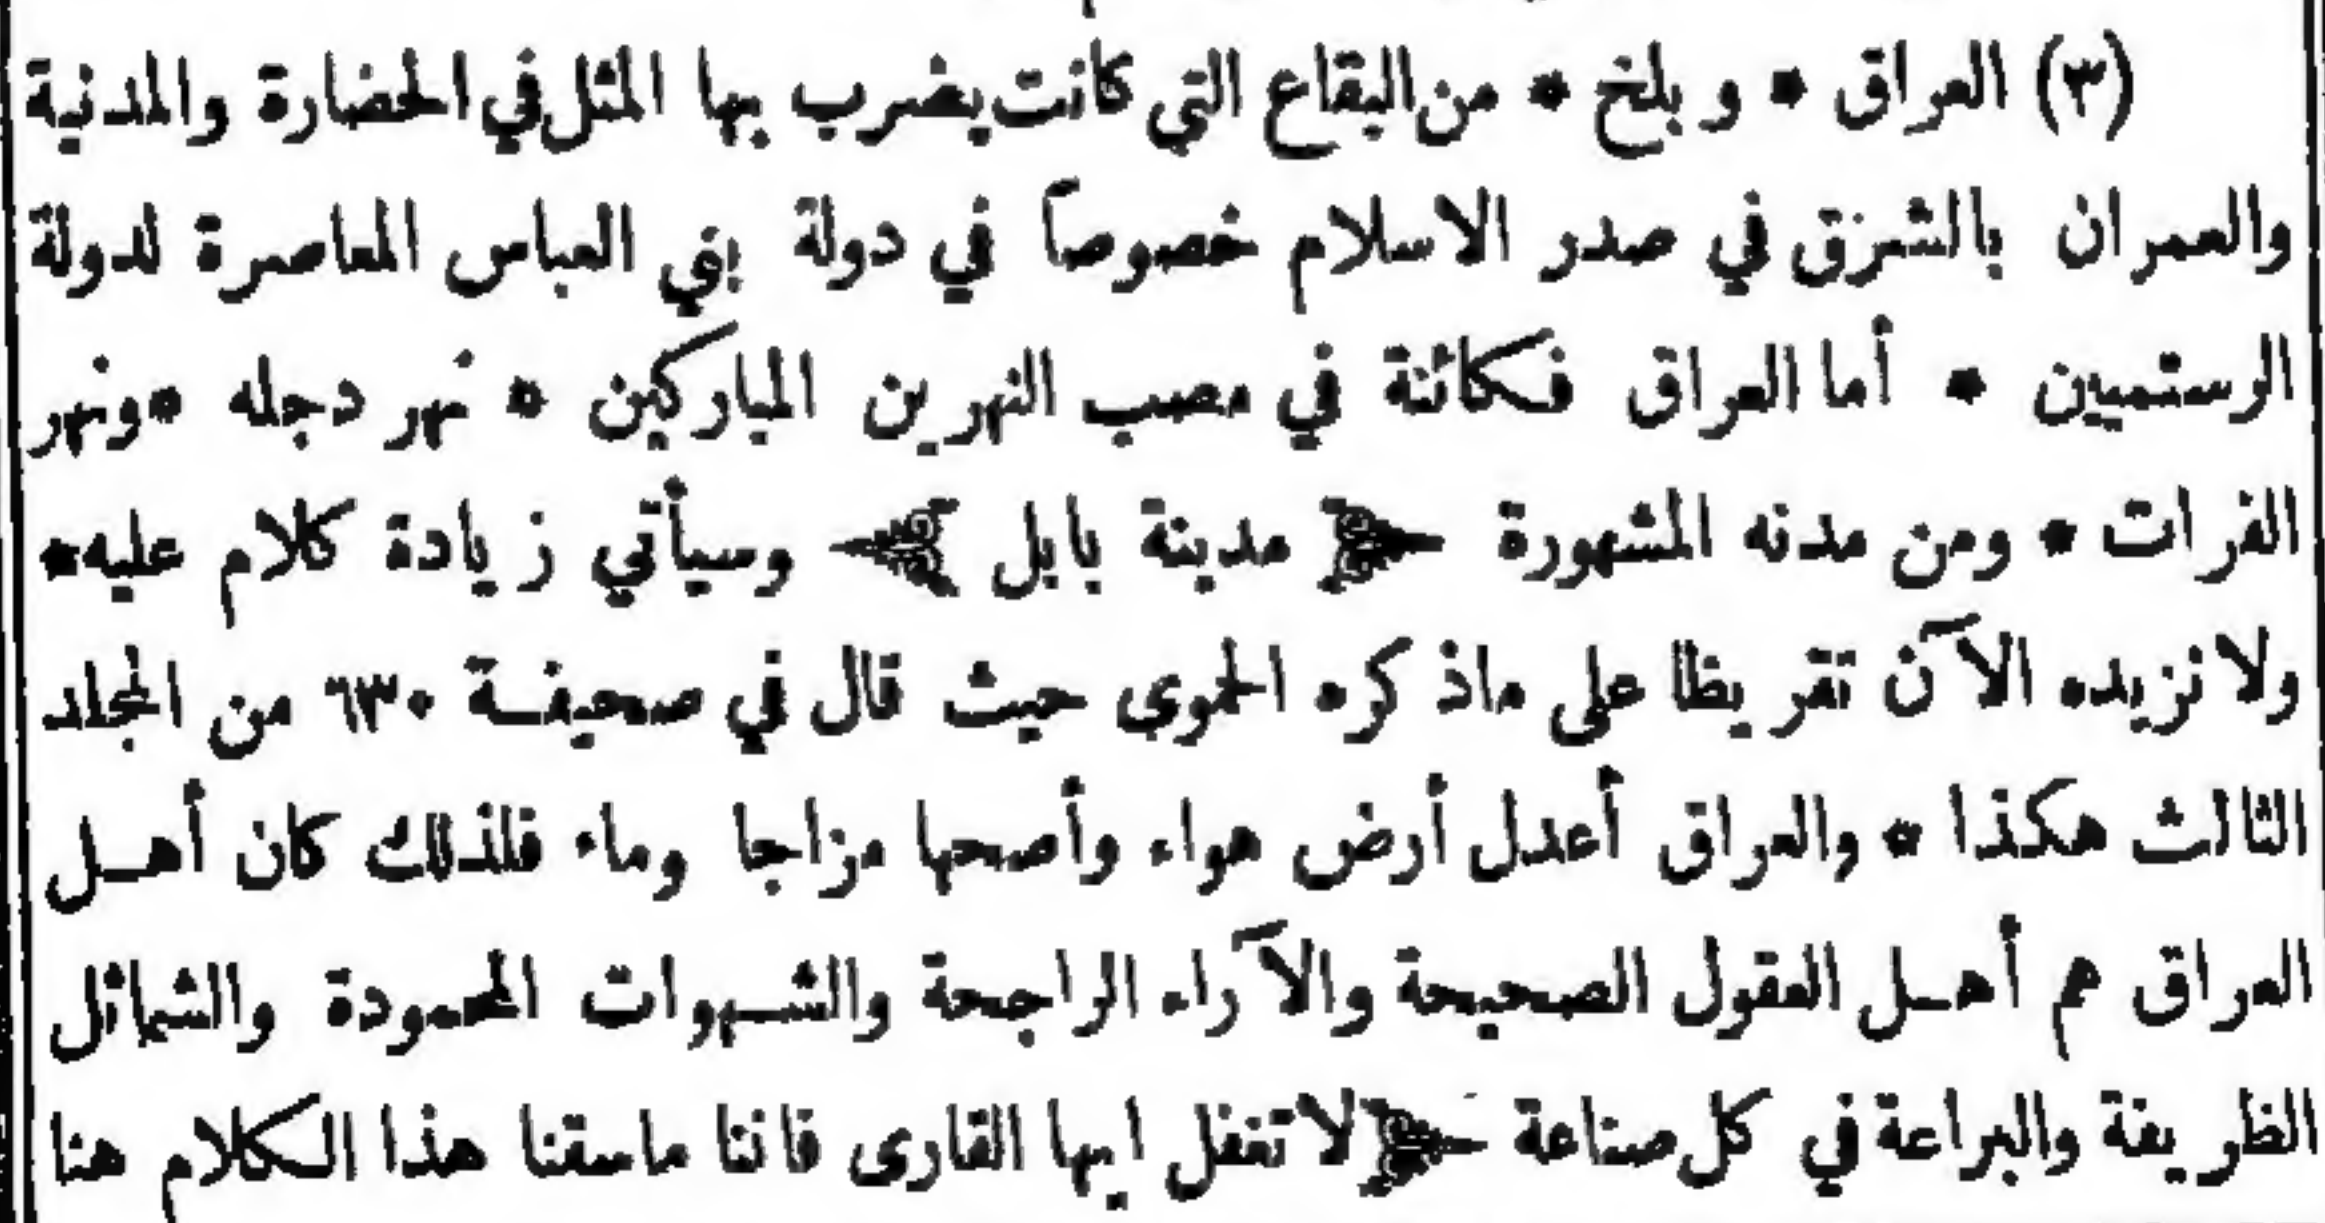 (٣) العراق * وبلخ * من البقاع التي كانت يضرب بها المثل في الحضارة والمدنية
والعمران بالشرق في صدر الاسلام خصوصاً في دولة بني العباس المعاصرة لدولة
الرستميين * أما العراق فكائنة في مصب النهرين المباركين * نهر دجله * ونهر
الفرات * ومن مدنه المشهورة ﴿ مدينة بابل ﴾ وسيأتي زيادة كلام عليه *
ولا نزيده الآن تقريظا على ماذكره الحموي حيث قال في صحيفة ٦٣٠ من المجلد
الثالث هكذا * والعراق أعدل أرض هواء وأصحها مزاجا وماء فلذلك كان أهل
العراق هم أهل العقول الصحيحة والآراء الراجحة والشهوات المحمودة والشمائل
الظريفة والبراعة في كل صناعة ﴿ لا تغفل ايها القارى فاننا ماسقنا هذا الكلام هنا